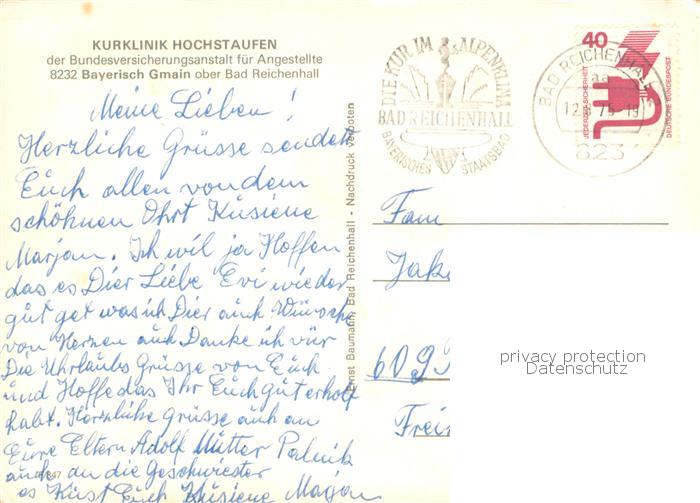 KURKLINIK HOCHSTAUFEN
der Bundesversicherungsanstalt für Angestellte
8232 Bayerisch Gmain ober Bad Reichenhall
Meine Lieben!
Herzliche Grüsse sendet
Euch allen von dem
schöhnen Ohrt Küsiene
Marjan. Ich wil ja Hoffen
das es Dier Liebe Evi wieder
gut get was ich Dier auch Wünsche
von Herzen auch Danke ich vür
Die Uhrlaubs Grüsse von Euch
und Hoffe das Ihr Euch gut erholt
habt. Herzliche Grüsse auch an
Eure Eltern Adolf Mütter
auch an die Geschwiester
es Küst Euch Küsiene
Ernst Baumann, Bad Reichenhall - Nachdruck verboten
DIE KUR IM ALPENKLIMA
BAD REICHENHALL
BAYERISCHES STAATSBAD
BAD REICHENHALL
aa
823
40
JEDERZEIT SICHERHEIT
DEUTSCHE BUNDESPOST
Fam
Jak
6093
privacy protection
Datenschutz